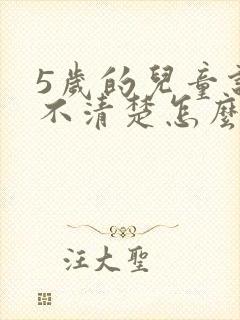 5歲的兒童
不清楚怎麼
汪大聖